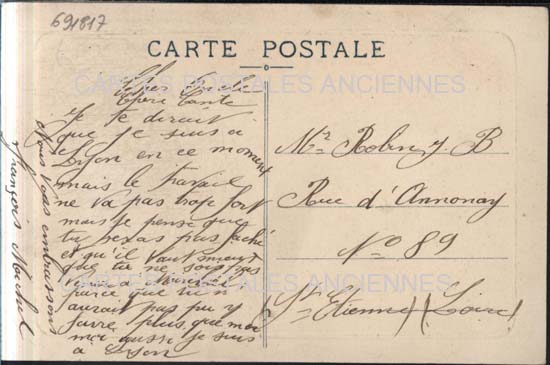 691817
CARTE POSTALE
CARTES POSTALES ANCIENNES
Cher Oncle
Chère Tante
Je te dirait
que je suis a
Lyon en ce moment
mais le travail
ne va pas trop fort
mais je pense que
tu seras pas faché
et qu'il vaut mieux
que tu ne sois pas
parce que rien
aurait pas pu y
faire plus que moi
moi aussi je suis
a Lyon
Nous vous embrassons
François Michel
Mr Robin J. B
Rue d'Annonay
No 89
St Etienne (Loire)
CARTES POSTALES ANCIENNES